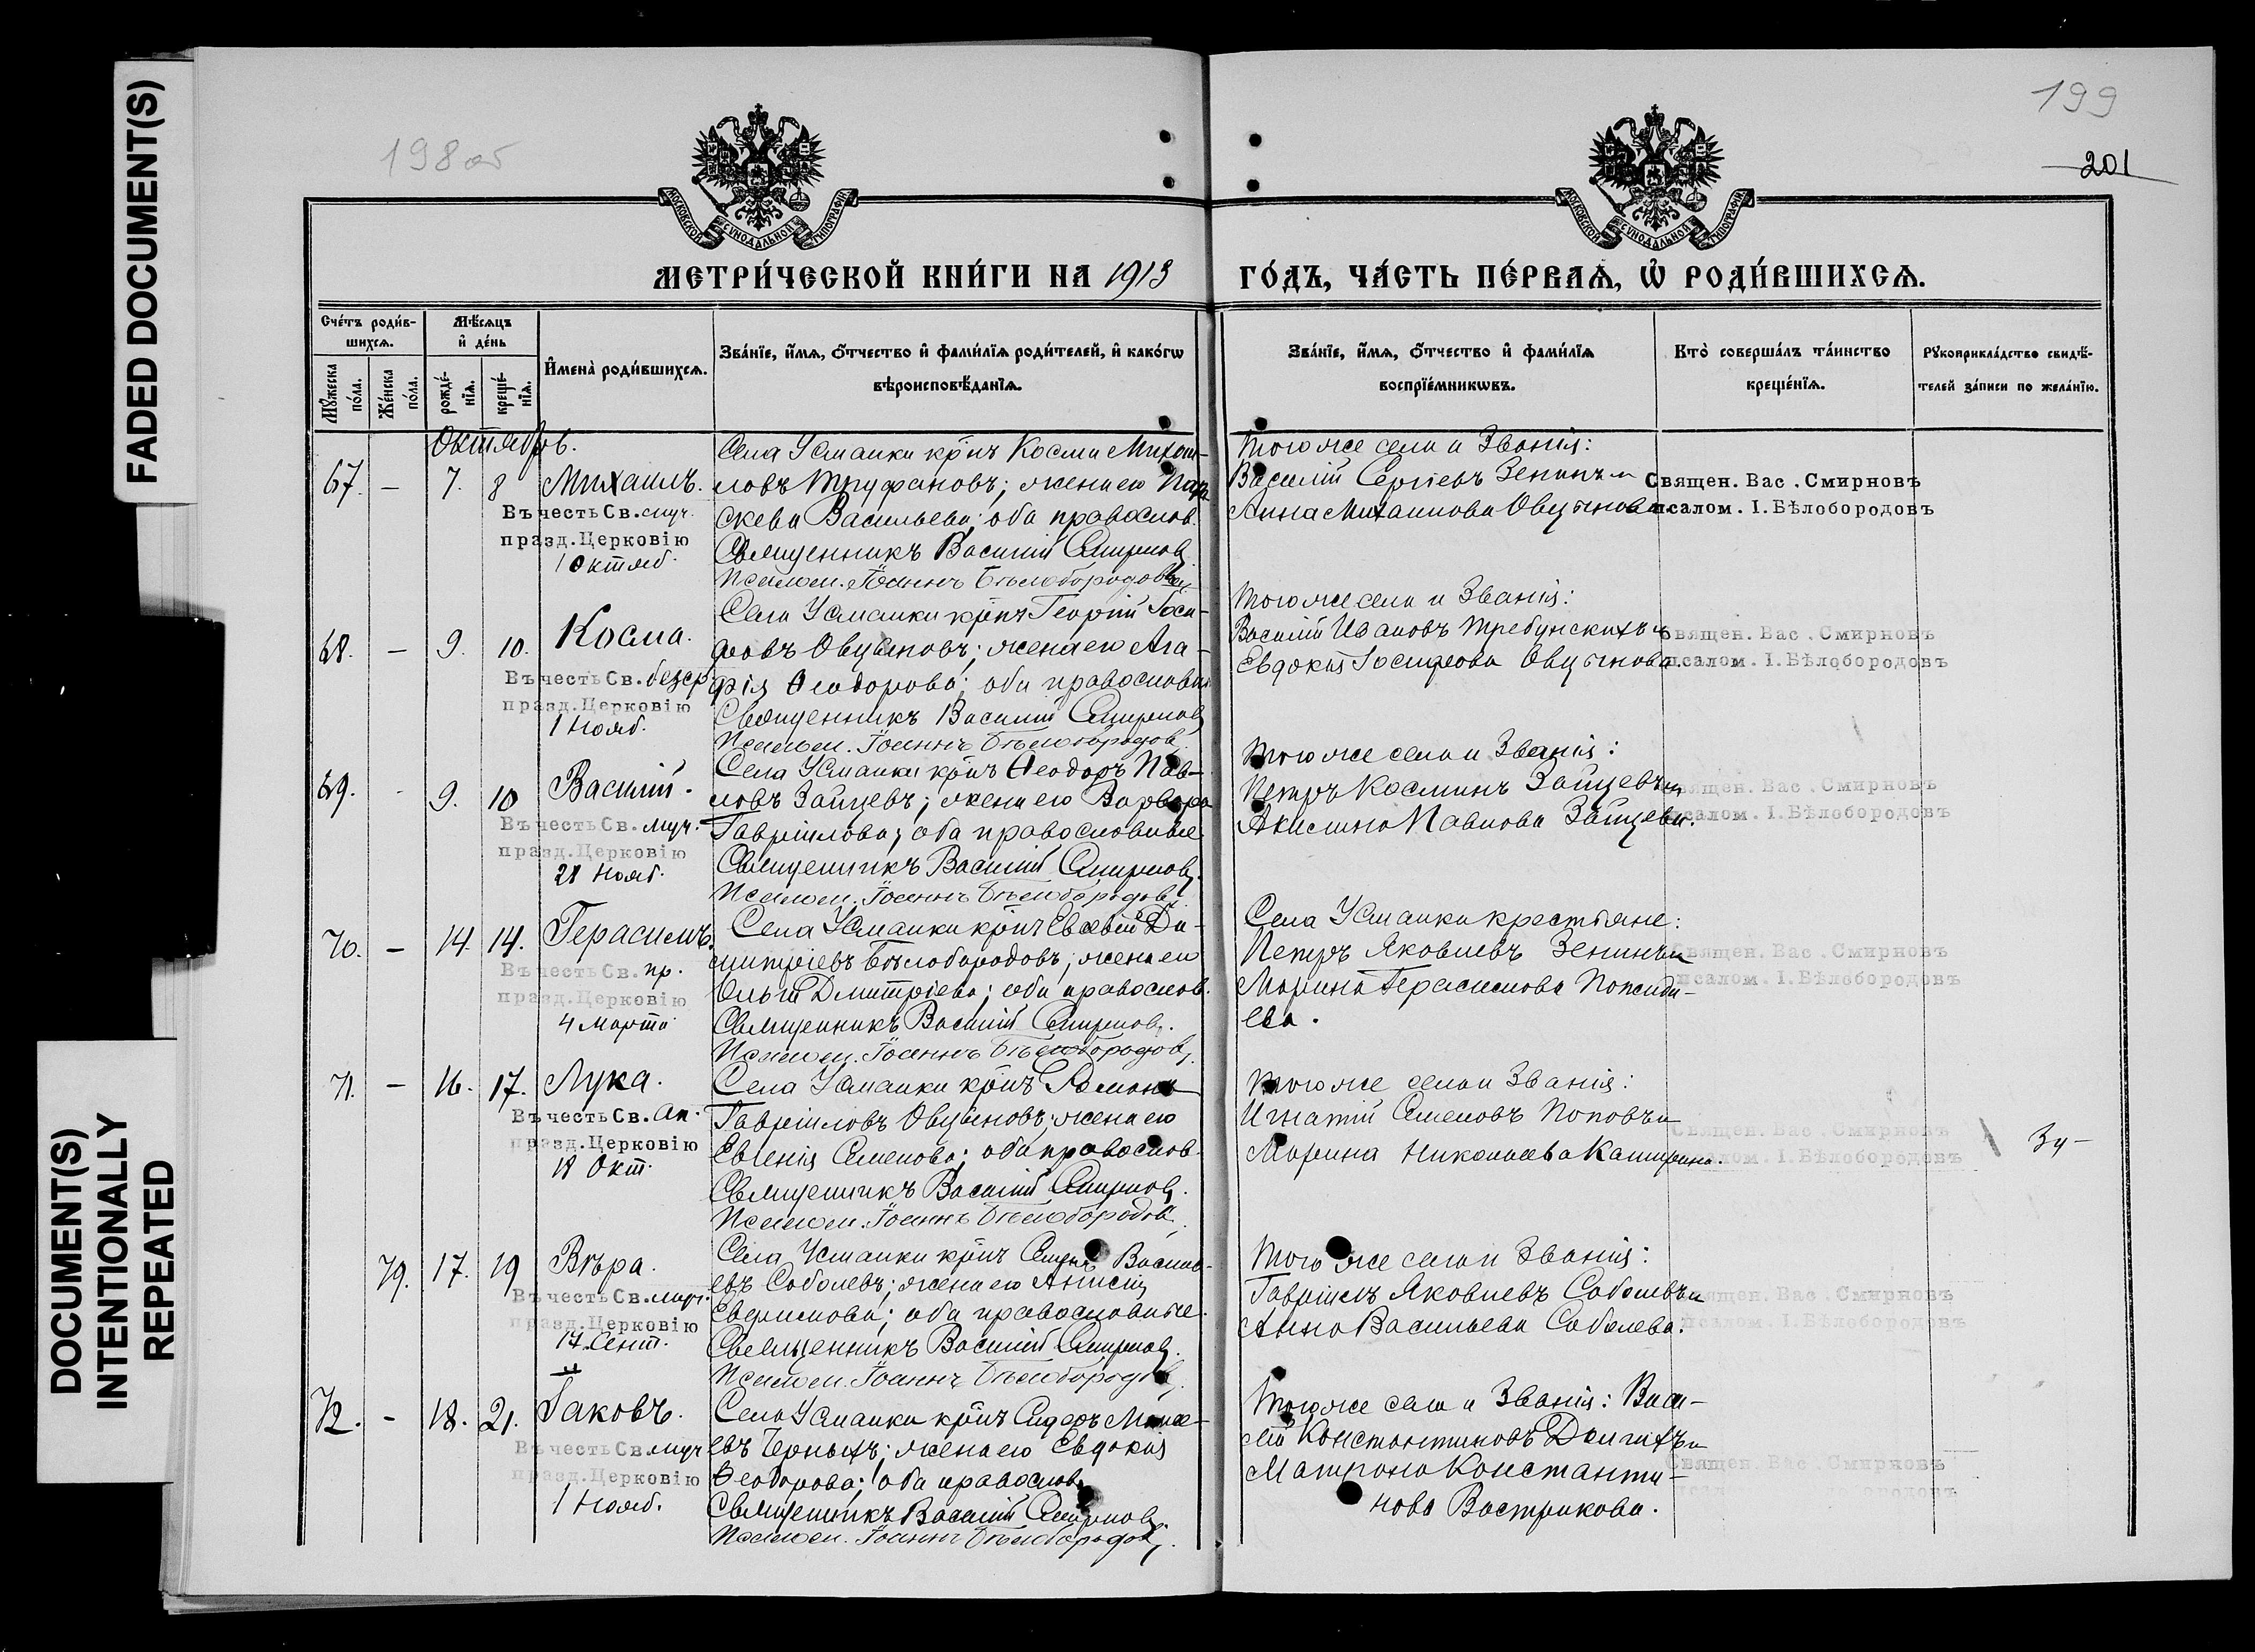 FADED DOCUMENT(S)
DOCUMENT(S)
INTENTIONALLY
REPEATED
198об
199
201
МОСКОВСКОЙ СѴНОДАЛЬНОЙ ТИПОГРАФІИ
МОСКОВСКОЙ СѴНОДАЛЬНОЙ ТИПОГРАФІИ
МЕТРИ́ЧЕСКОЙ КНИ́ГИ НА 1913 ГО́ДЪ, ЧА́СТЬ ПЕ́РВАѦ, Ѡ҆ РОДИ́ВШИХСѦ.
Сче́тъ роди́в-
шихсѧ.
Мꙋ́жеска
по́ла.
Же́нска
по́ла.
Мѣ́сѧцъ
и҆ де́нь
рожде́-
нїѧ.
креще́-
нїѧ.
И҆мена̀ роди́вшихсѧ.
Зва́нїе, и҆́мѧ, ѻ҆́тчество и҆ фами́лїѧ роди́телей, и҆ како́гѡ
вѣроисповѣ́данїѧ.
Зва́нїе, и҆́мѧ, ѻ҆́тчество и҆ фами́лїѧ
воспрїе́мникѡвъ.
Кто̀ соверша́лъ та́инство
креще́нїѧ.
Рꙋкоприкла́дство свидѣ́-
телей за́писи по жела́нїю.
Октябрь.
67. – 7. 8 Михаилъ.
Въ честь Св. муч.
празд. Церковію
1 октяб.
Села Усманки кр̃нъ Косма Михаи-
ловъ Труфановъ; жена его Пара
скева Васильева; оба православ.
Священникъ Василій Смирновъ
Псалом. Іоаннъ Бѣлобородовъ
Того же села и званія:
Василій Сергіевъ Зенинъ и
Анна Михаилова Овцынова.
Священ. Вас. Смирновъ
псалом. І. Бѣлобородовъ
68. – 9. 10. Косма.
Въ честь Св. безср.
празд. Церковію
1 Нояб.
Села Усманки кр̃нъ Георгій Іоси-
фовъ Овцыновъ; жена его Ага-
фія Ѳеодорова; оба православн.
Священникъ Василій Смирновъ
Псалом. Іоаннъ Бѣлобородовъ
Того же села и званія:
Василій Ивановъ Требунскихъ и
Евдокія Іосифова Овцынова.
Священ. Вас. Смирновъ
псалом. І. Бѣлобородовъ
69. - 9. 10 Василій.
Въ честь Св. муч.
празд. Церковію
28 Нояб.
Села Усманки кр̃нъ Ѳеодоръ Пав-
ловъ Зайцевъ; жена его Варвара
Гавріилова; оба православные.
Священникъ Василій Смирновъ.
Псалом. Іоаннъ Бѣлобородовъ
Того же села и званія:
Петръ Косминъ Зайцевъ и
Акилина Павлова Зайцева.
Священ. Вас. Смирновъ
псалом. І. Бѣлобородовъ
70. – 14. 14. Герасимъ.
Въ честь Св. пр.
празд. Церковію
4 Марта
Села Усманки кр̃нъ Евсевій Ди-
митріевъ Бѣлобородовъ; жена его
Ольга Димитріева; оба православ.
Священникъ Василій Смирновъ.
Псалом. Іоаннъ Бѣлобородовъ.
Села Усманки крестьяне:
Петръ Яковлевъ Зенинъ и
Марина Герасимова Пожида-
ева.
Священ. Вас. Смирновъ
псалом. І. Бѣлобородовъ
71. – 16. 17. Лука.
Въ честь Св. Ап.
празд. Церковію
18 Окт.
Села Усманки кр̃нъ Романъ
Гавріиловъ Овцыновъ; жена его
Евгенія Семенова; оба православ.
Священникъ Василій Смирновъ.
Псалом. Іоаннъ Бѣлобородовъ.
Того же села и званія:
Игнатій Семеновъ Поповъ и
Марина Николаева Каширина.
Священ. Вас. Смирновъ
псалом. І. Бѣлобородовъ
79. 17. 19 Вѣра.
Въ честь Св. муч.
празд. Церковію
17 Сент.
Села Усманки кр̃нъ Семенъ Василь-
евъ Соболевъ; жена его Анисія
Евфимова; оба православные.
Священникъ Василій Смирновъ.
Псалом. Іоаннъ Бѣлобородовъ.
Того же села и званія:
Гавріилъ Яковлевъ Соболевъ и
Анна Васильева Соболева.
Священ. Вас. Смирновъ
псалом. І. Бѣлобородовъ
72. – 18. 21. Іаковъ.
Въ честь Св. муч
празд. Церковію
1 Нояб.
Села Усманки кр̃нъ Сидоръ Моисе-
евъ Черныхъ; жена его Евдокія
Ѳеодорова; оба православ.
Священникъ Василій Смирновъ.
Псалом. Іоаннъ Бѣлобородовъ.
Того же села и званія: Васи-
лій Константиновъ Долгихъ и
Матрона Константи-
нова Вострикова.
Священ. Вас. Смирновъ